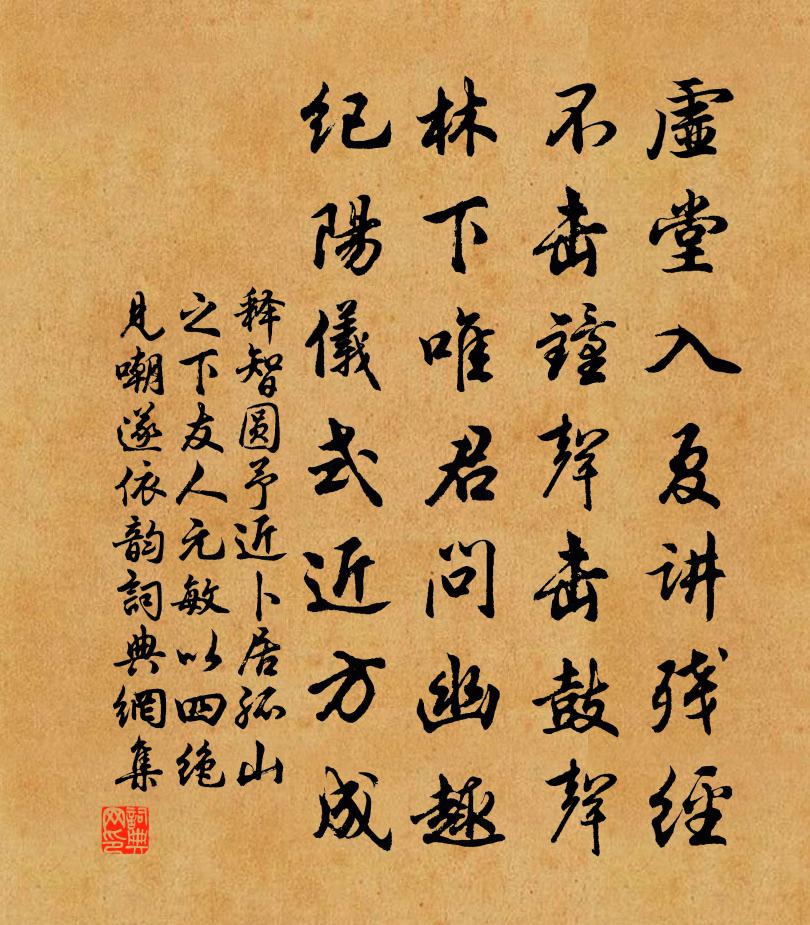 虛堂入夏讲残經
不击鐘聲击鼓聲
林下唯君問幽趣
纪陽儀式近方成
释智圆予近卜居孤山
之下友人元敏以四绝
见嘲遂依韵詞典網集
詞典网印